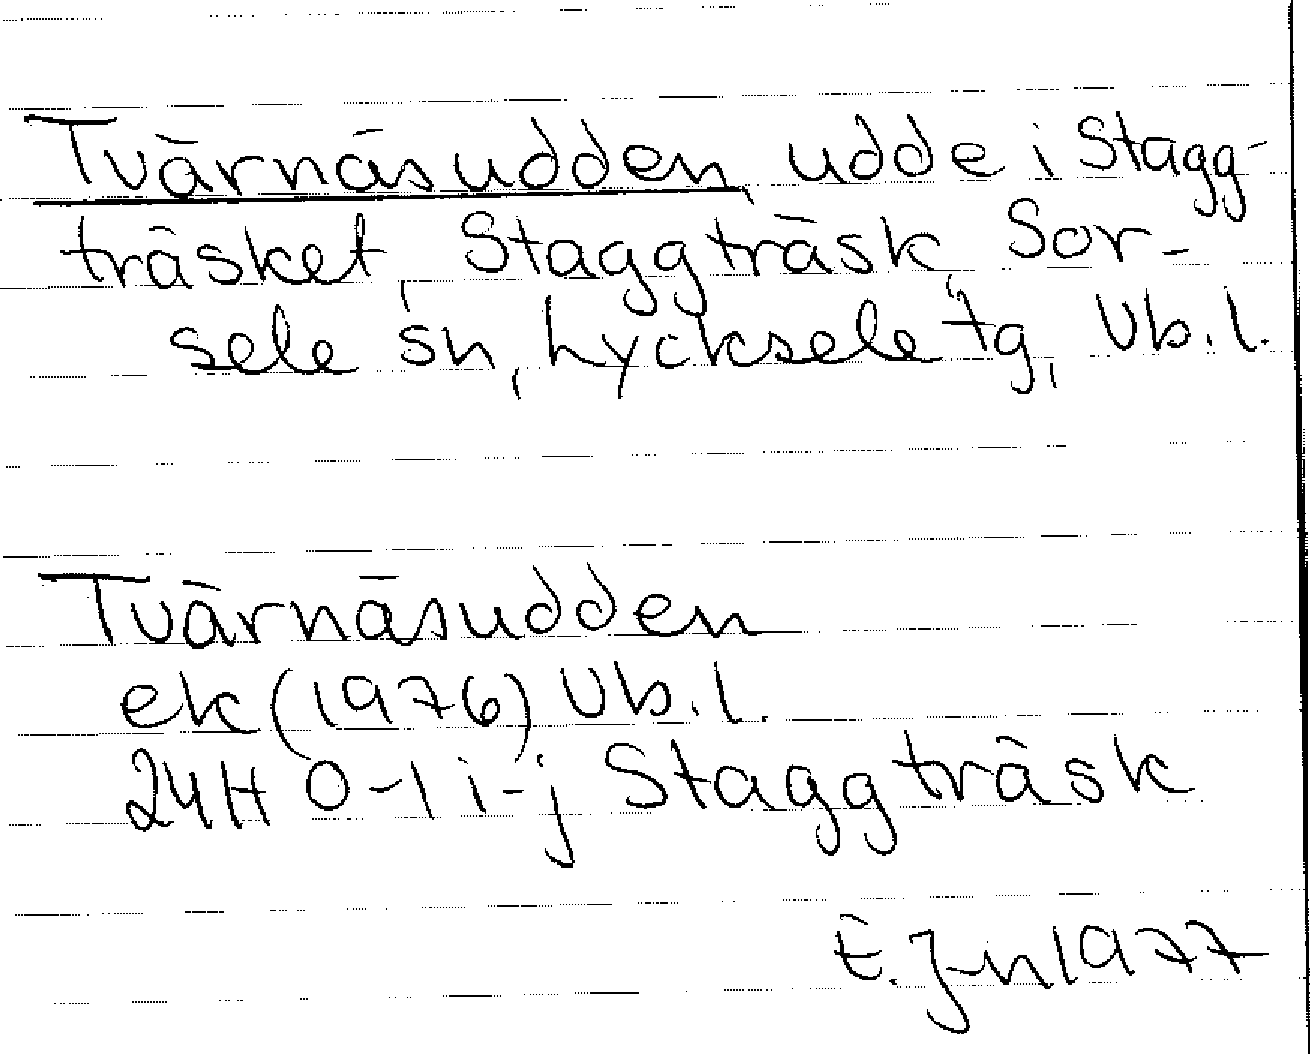 Tvärnäsudden, udde i Stagg-
träsket, Staggträsk, Sor-
sele sn, Lycksele tg, Vb. l.
Tvärnäsudden
ek (1976) Vb. l.
24H 0-1 i-j Staggträsk
E. J-n 1977